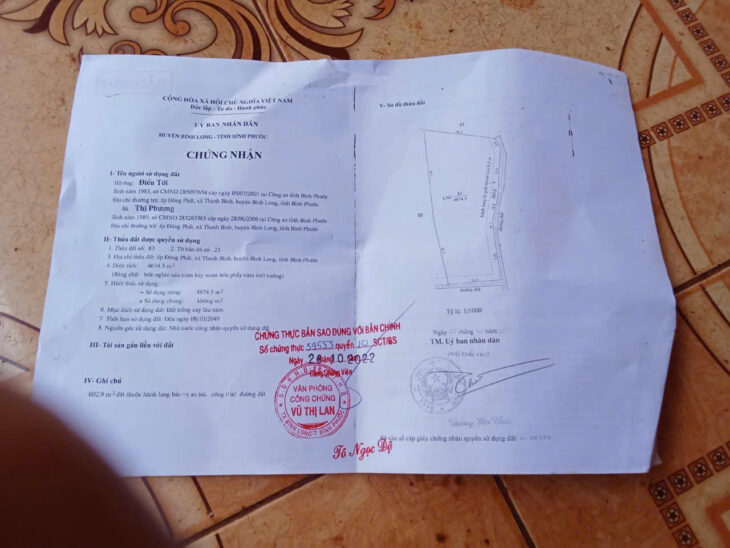 CỘNG HÒA XÃ HỘI CHỦ NGHĨA VIỆT NAM
Độc lập - Tự do - Hạnh phúc
ỦY BAN NHÂN DÂN
HUYỆN BÌNH LONG - TỈNH BÌNH PHƯỚC
CHỨNG NHẬN
I- Tên người sử dụng đất
Hộ ông: Điểu Tới
Sinh năm 1983, số CMND 285097654 cấp ngày 05/07/2005 tại Công an tỉnh Bình Phước
Địa chỉ thường trú: ấp Đông Phất, xã Thanh Bình, huyện Bình Long, tỉnh Bình Phước
Bà Thị Phương
Sinh năm 1989, số CMND 285263363 cấp ngày 28/06/2006 tại Công an tỉnh Bình Phước
Địa chỉ thường trú: ấp Đông Phất, xã Thanh Bình, huyện Bình Long, tỉnh Bình Phước
II- Thửa đất được quyền sử dụng
1. Thửa đất số: 83 2. Tờ bản đồ số: 23
3. Địa chỉ thửa đất: ấp Đông Phất, xã Thanh Bình, huyện Bình Long, tỉnh Bình Phước
4. Diện tích: 4674.5 m²
(Bằng chữ: bốn nghìn sáu trăm bảy mươi bốn phẩy năm mét vuông)
5. Hình thức sử dụng:
+ Sử dụng riêng: 4674.5 m²
+ Sử dụng chung: không m²
6. Mục đích sử dụng đất: Đất trồng cây lâu năm
7. Thời hạn sử dụng đất: Đến ngày 08/10/2049
8. Nguồn gốc sử dụng đất: Nhà nước công nhận quyền sử dụng đất
III- Tài sản gắn liền với đất
IV- Ghi chú
602.9 m² đất thuộc hành lang bảo vệ an toàn công trình đường đất
CHỨNG THỰC BẢN SAO ĐÚNG VỚI BẢN CHÍNH
Số chứng thực 39553 quyển 10 SCT/BS
Ngày 28 tháng 10 2022
Công Chứng Viên
VĂN PHÒNG
CÔNG CHỨNG
VŨ THỊ LAN
Tô Ngọc Dệ
V- Sơ đồ thửa đất
B
83
4674.5
đường đất
đường đất
Tỷ lệ: 1/1000
TM. Uỷ ban nhân dân
PHÓ CHỦ TỊCH
vào sổ cấp giấy chứng nhận quyền sử dụng đất: